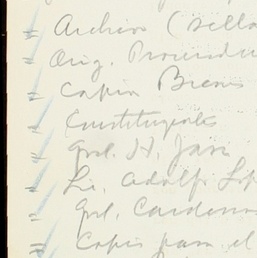 = Archivo (sello
= Orig. Procuradu
= Copia Bienes
= Constituyente
= Gral. H. Jara
Lic. Adolfo Lop
= Gral. Cardenas
= Copia para el